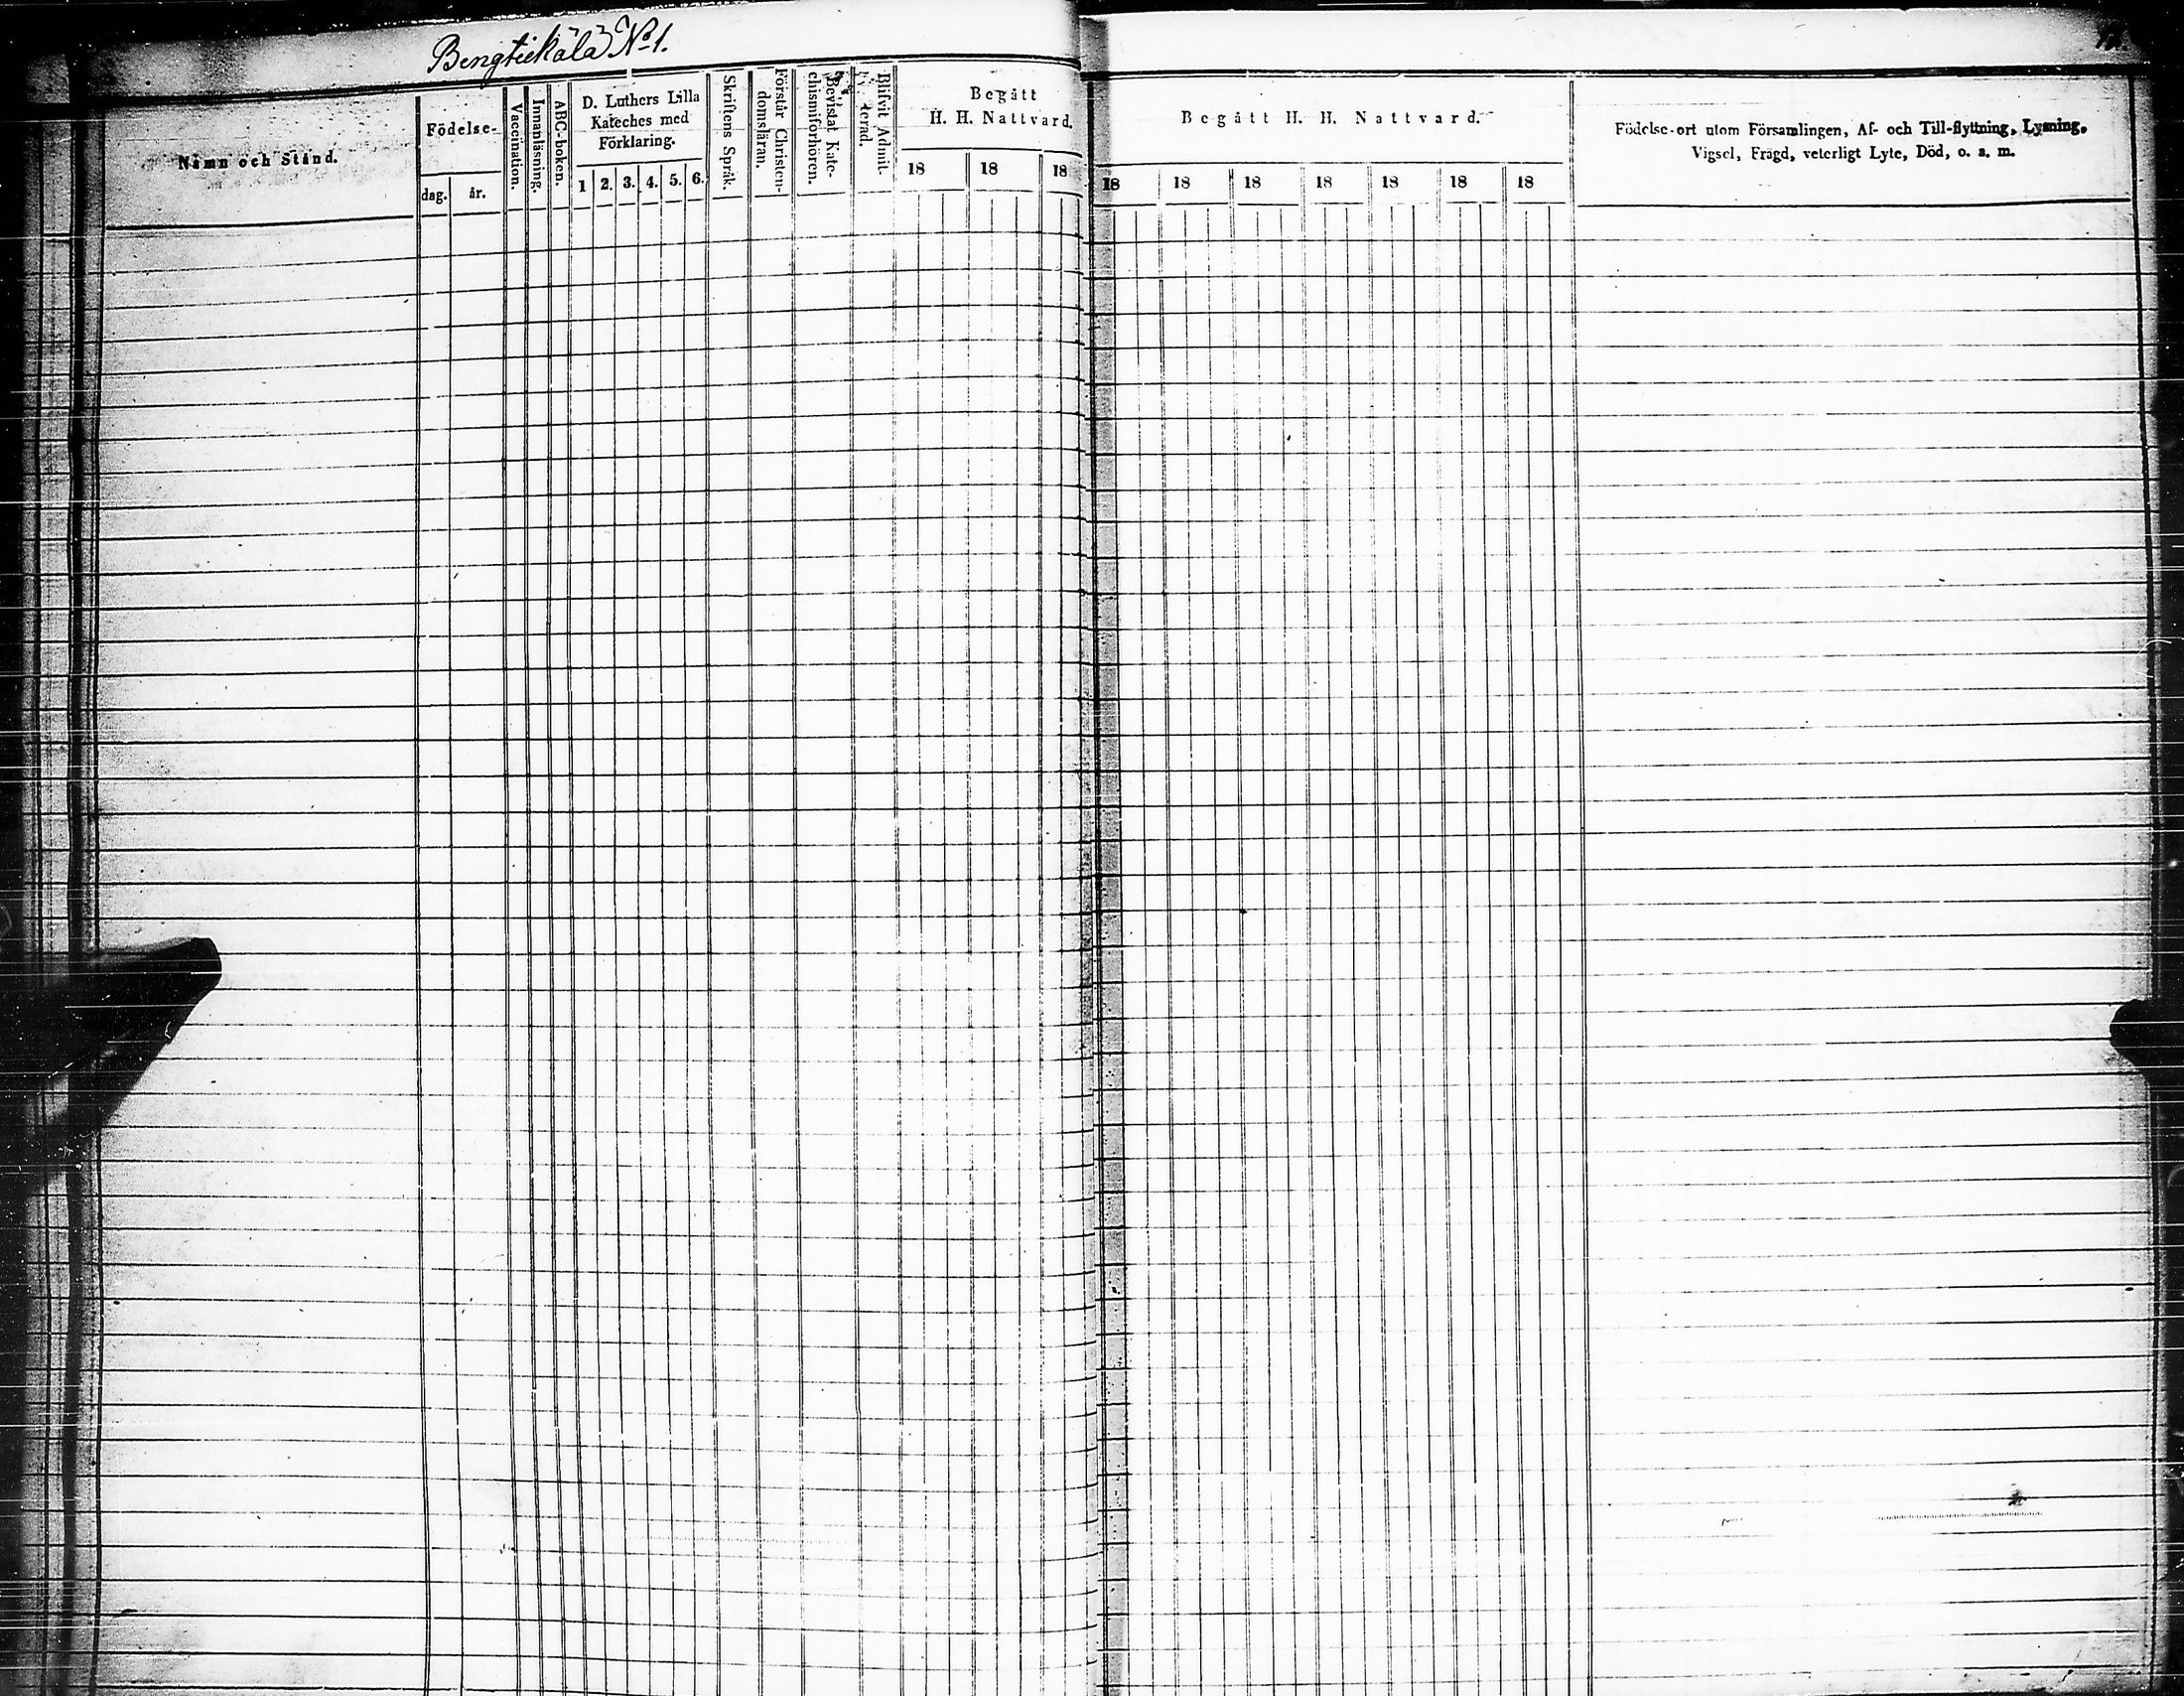 Bengtikälä No 1.
Namn och Stånd.
Födelse-
dag.
år.
Vaccination.
Innanläsning.
ABC-boken.
D. Luthers Lilla
Kateches med
Förklaring.
1 2. 3. 4. 5. 6.
Skriftens Språk.
Förstår Christen-
domsläran.
Bevistat Kate-
chismiförhören.
Blifvit Admit-
terad.
Begått
H. H. Nattvard.
18 18 18
Begått H. H. Nattvard.
18 18 18 18 18 18 18
Födelse-ort utom Församlingen, Af- och Till-flyttning, Lysning,
Vigsel, Frägd, veterligt Lyte, Död, o. s. m.